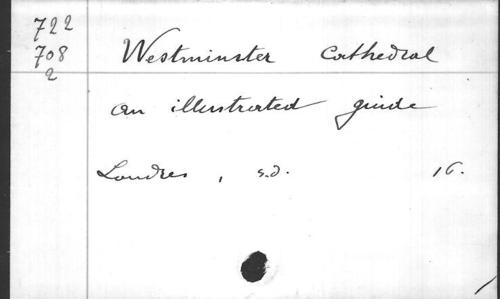 722
708
2
Westminster Cathedral
an illustrated guide
Londres, s.d. 16.